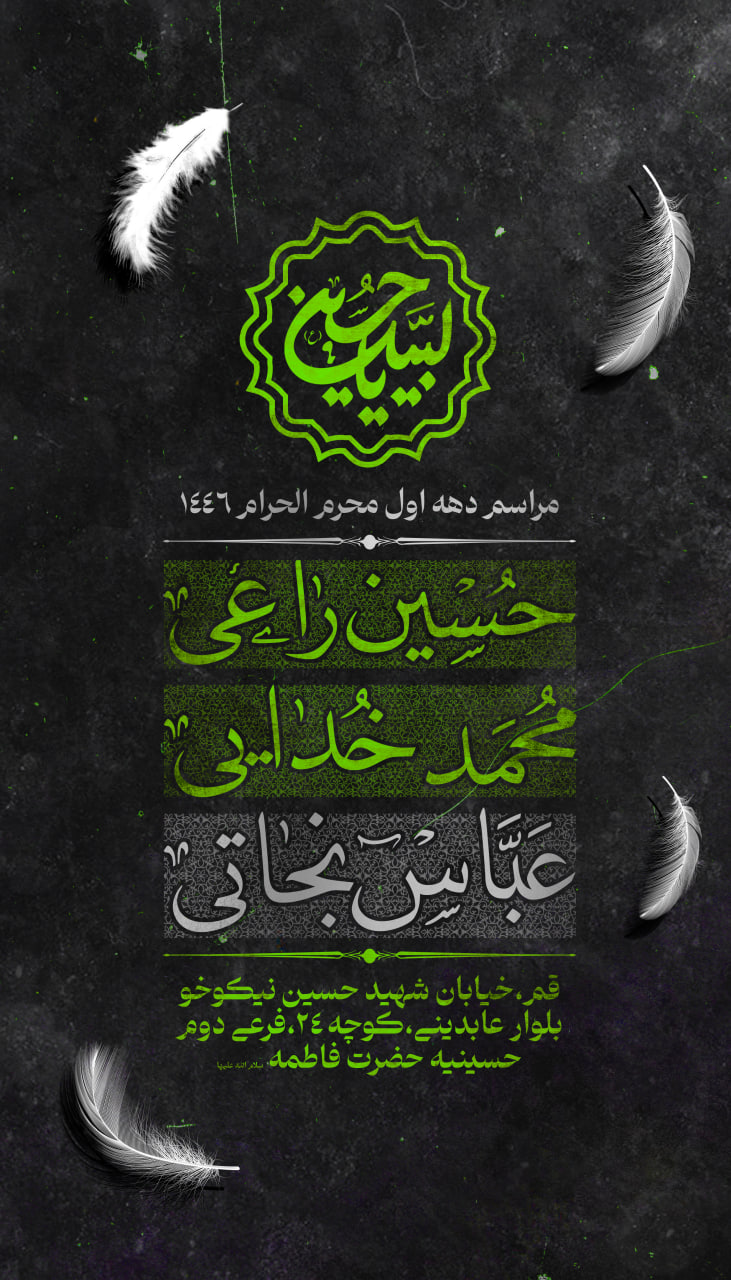 لبیک یا حسین (ع)
مراسم دهه اول محرم الحرام ۱٤٤٦
حُسِین راعی
مُحَمَد خُدایی
عَبَّاسِ نجاتی
قم،خیابان شهید حسین نیکوخو
بلوار عابدینی،کوچه ۲٤،فرعی دوم
حسینیه حضرت فاطمه سلام الله علیها